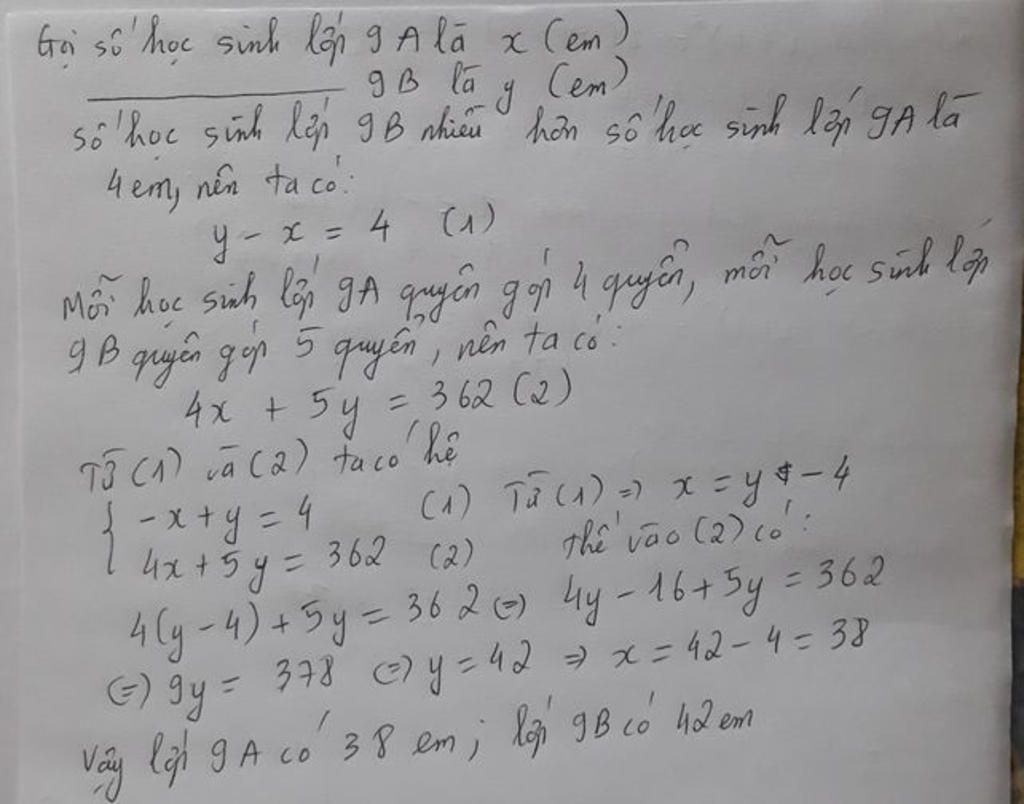 Gọi số học sinh lớp 9A là x (em)
_______________ 9B là y (em)
số học sinh lớp 9B nhiều hơn số học sinh lớp 9A là
4 em, nên ta có:
y - x = 4 (1)
Mỗi học sinh lớp 9A quyên góp 4 quyển, mỗi học sinh lớp
9B quyên góp 5 quyển, nên ta có:
4x + 5y = 362 (2)
Từ (1) và (2) ta có hệ
{ -x + y = 4 (1) Từ (1) => x = y - 4
4x + 5y = 362 (2) thế vào (2) có:
4(y - 4) + 5y = 362 (=) 4y - 16 + 5y = 362
(=) 9y = 378 (=) y = 42 => x = 42 - 4 = 38
Vậy lớp 9A có 38 em; lớp 9B có 42 em